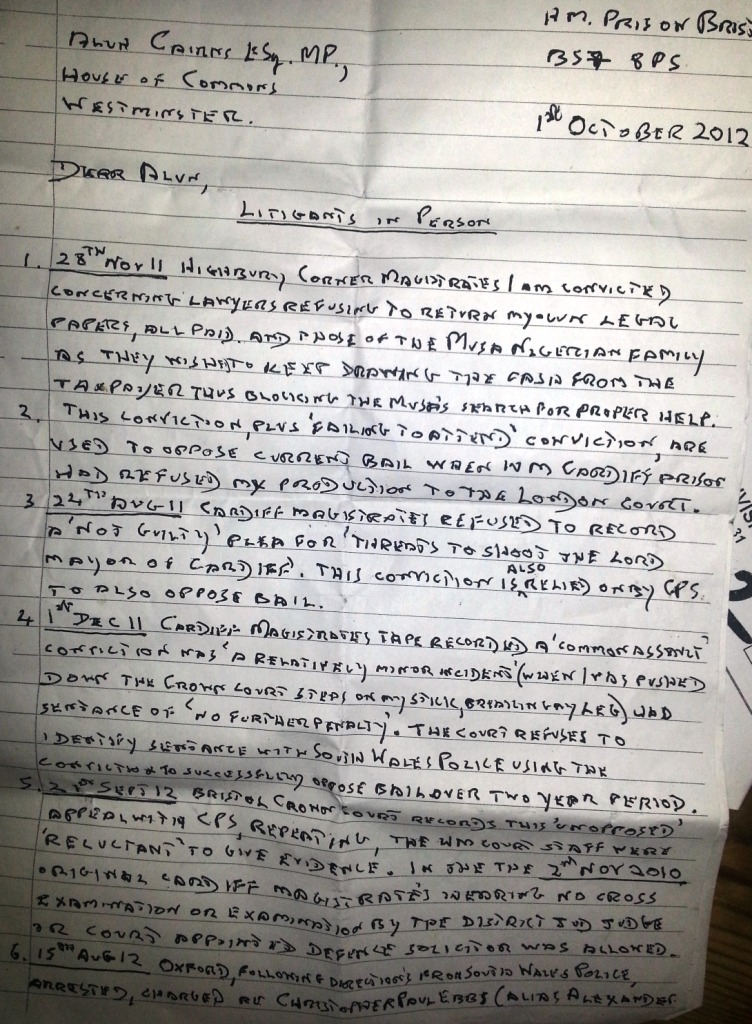 H.M. PRISON BRIS
ALUN CAIRNS ESq. MP.,
BS7 8PS
HOUSE OF COMMONS
WESTMINSTER.
1st OCTOBER 2012
DEAR ALUN,
LITIGANTS IN PERSON
1. 28TH NOV 11 HIGHBURY CORNER MAGISTRATES I AM CONVICTED
CONCERNING LAWYERS REFUSING TO RETURN MY OWN LEGAL
PAPERS, ALL PAID, AND THOSE OF THE MUSA NIGERIAN FAMILY
AS THEY WISH TO KEEP DRAWING THE CASH FROM THE
TAXPAYER THUS BLOCKING THE MUSA'S SEARCH FOR PROPER HELP.
2. THIS CONVICTION, PLUS 'FAILING TO ATTEND' CONVICTION, ARE
USED TO OPPOSE CURRENT BAIL WHEN HM CARDIFF PRISON
HAD REFUSED MY PRODUCTION TO THE LONDON COURT.
3 24TH AUG 11 CARDIFF MAGISTRATES REFUSED TO RECORD
A 'NOT GUILTY' PLEA FOR 'THREATS TO SHOOT THE LORD
MAYOR OF CARDIFF'. THIS CONVICTION IS ALSO RELIED ON BY CPS
TO ALSO OPPOSE BAIL.
4 1st DEC 11 CARDIFF MAGISTRATES TAPE RECORDED A 'COMMON ASSAULT'
CONVICTION WAS 'A RELATIVELY MINOR INCIDENT' (WHEN I WAS PUSHED
DOWN THE CROWN COURT STEPS ON MY STICK, BREAKING MY LEG) HAD
SENTANCE OF 'NO FURTHER PENALTY'. THE COURT REFUSES TO
IDENTIFY SENTANCE WITH SOUTH WALES POLICE USING THE
CONVICTION TO SUCCESSFULLY OPPOSE BAIL OVER TWO YEAR PERIOD.
5. SEPT 12 BRISTOL CROWN COURT RECORDS THIS 'UNOPPOSED'
APPEAL WITH CPS, REPEATING, THE HM COURT STAFF WERE
'RELUCTANT' TO GIVE EVIDENCE. IN THE THE 2nd NOV 2010
ORIGINAL CARDIFF MAGISTRATES HEARING NO CROSS
EXAMINATION OR EXAMINATION BY THE DISTRICT JUDGE
OR COURT APPOINTED DEFENCE SOLICITOR WAS ALLOWED.
6. 15TH AUG 12 OXFORD, FOLLOWING DIRECTIONS FROM SOUTH WALES POLICE,
ARRESTED, CHARGED AS CHRISTOPHER PAUL EBBS (ALIAS ALEXANDER